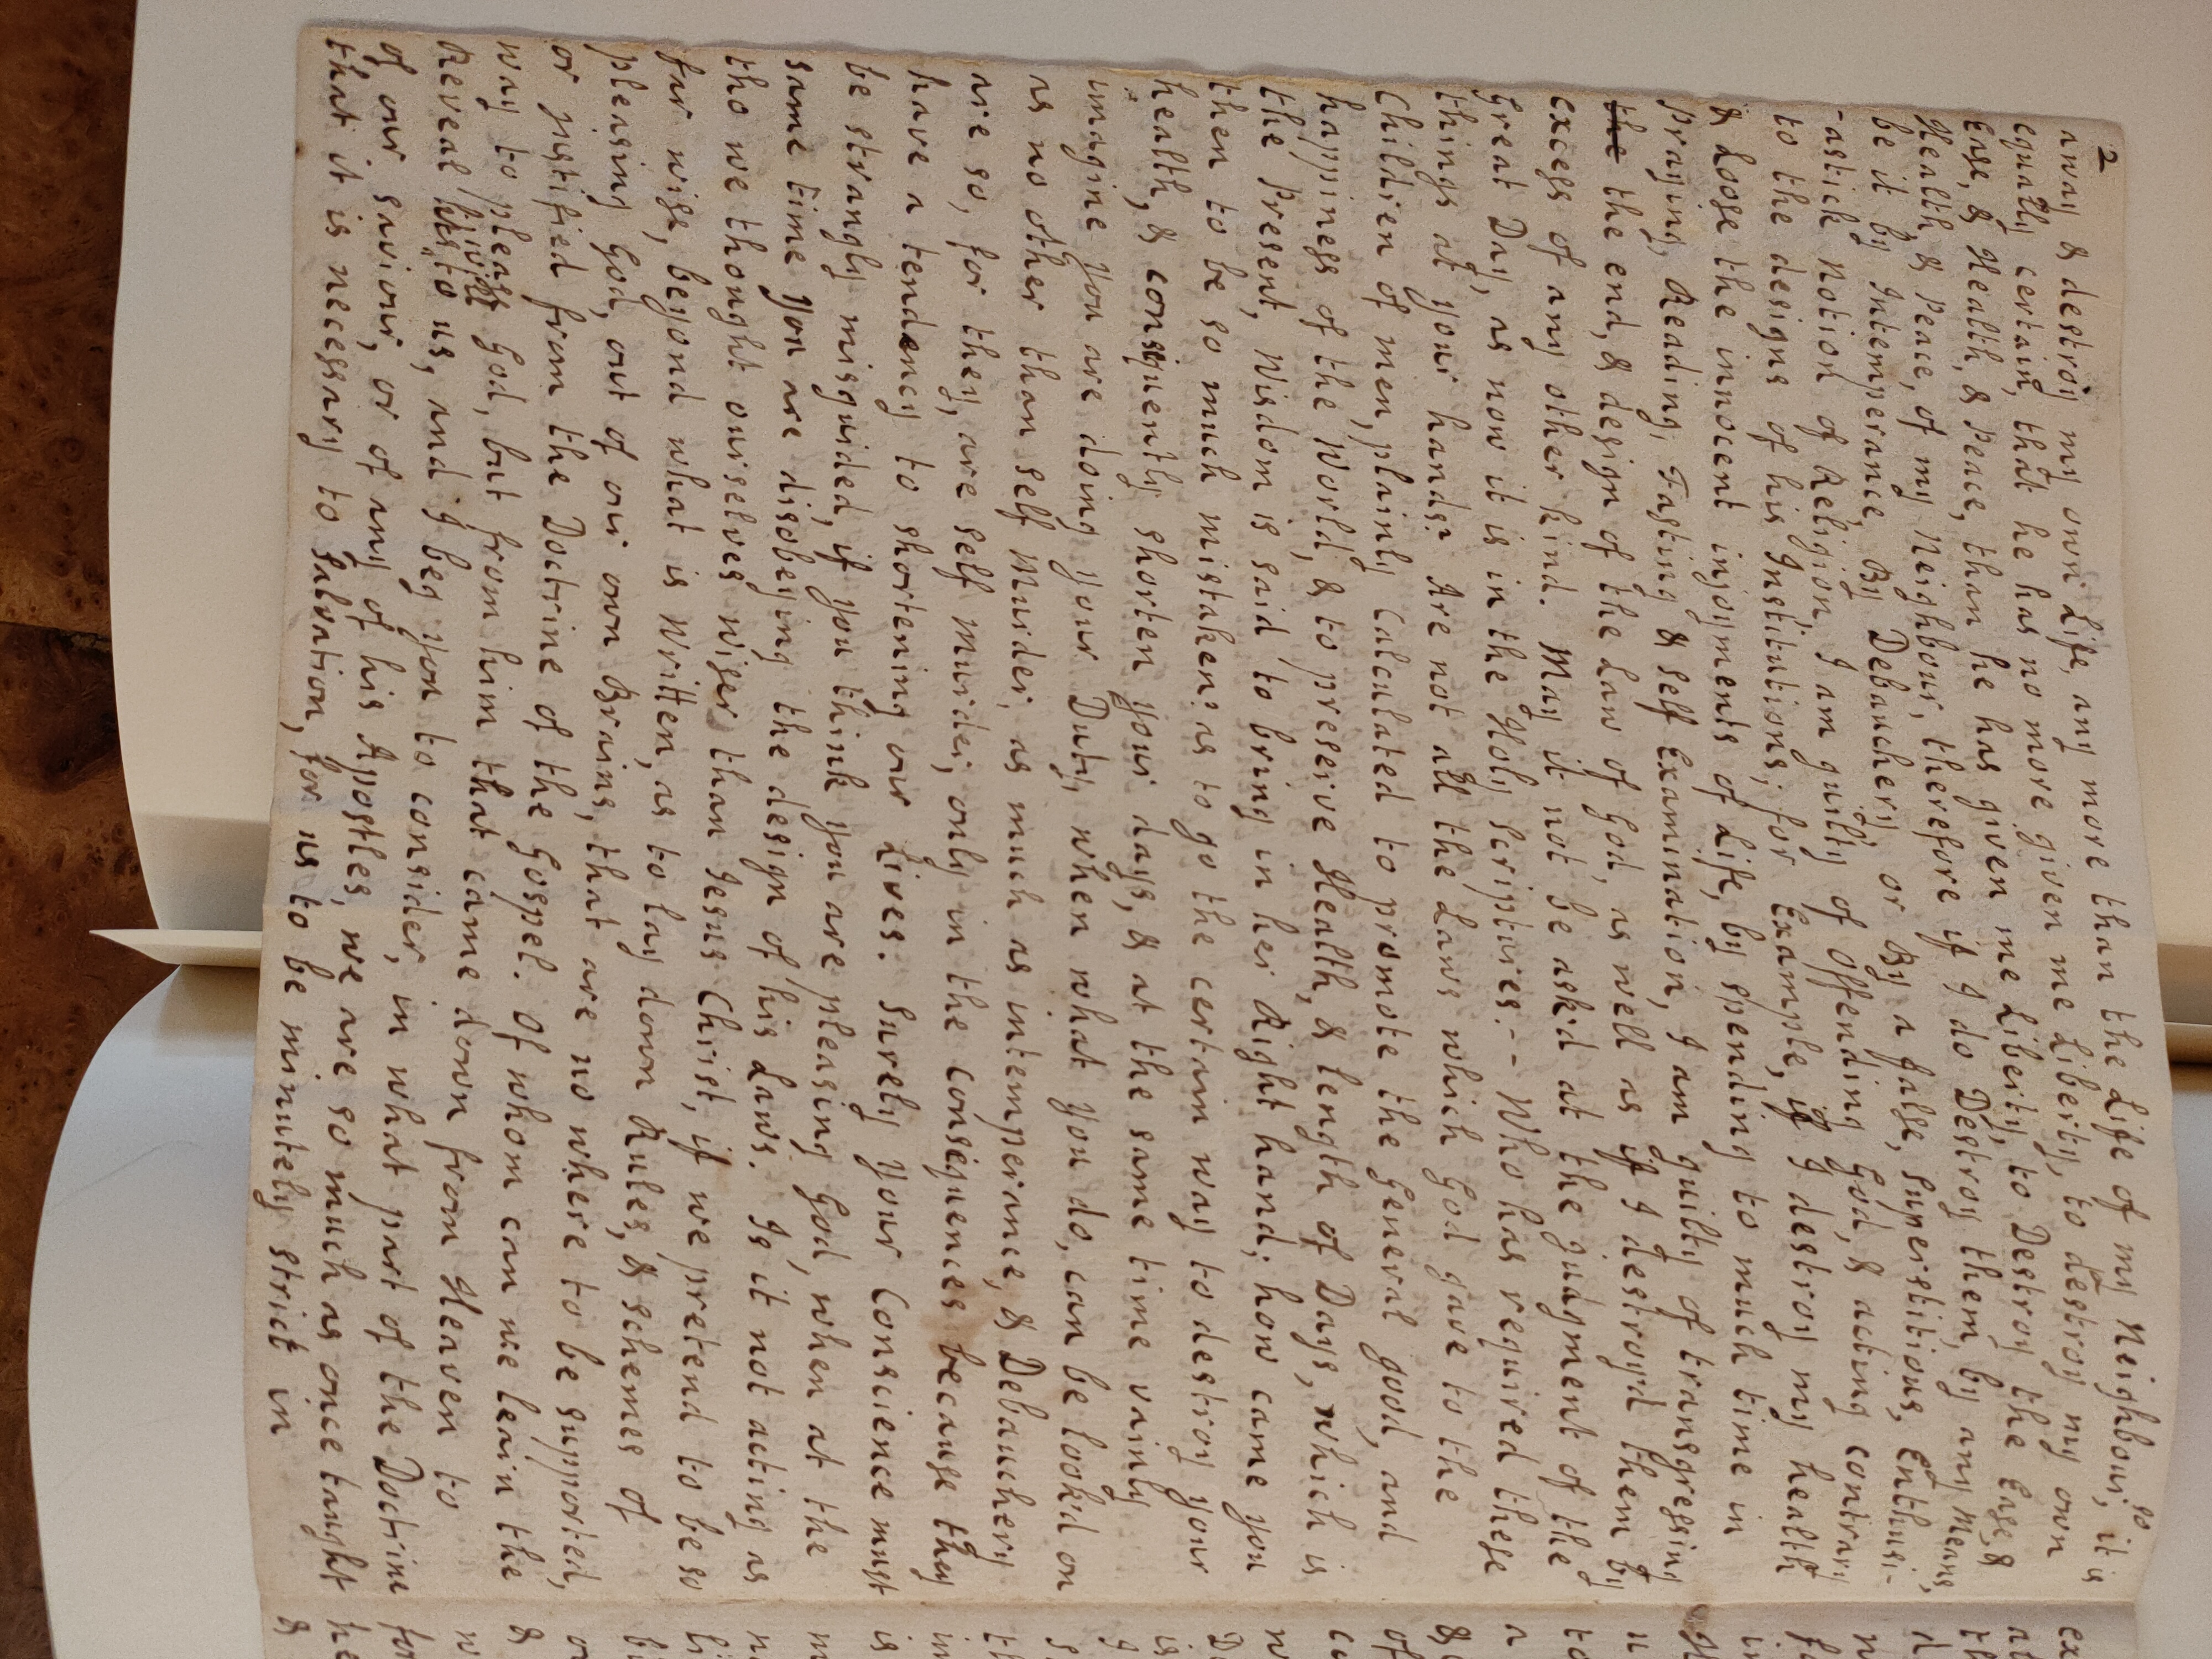 2
away & destroy my own Life, any more than the Life of my Neighbour, so it is
equally certain, that he has no more given me Liberty, to destroy my own
Ease, & Health, & Peace, than he has given me Liberty, to Destroy the Ease, &
Health, & Peace, of my Neighbour, therefore if I do Destroy them, by any Means,
be it by Intemperance, By Debauchery, or By a false, Superstitious, Enthusi-
-astick Notion of Religion, I am guilty of offending God, & acting contrary
to the designs of his Institutions; for Example, if I destroy my health
& Loose the innocent injoyments of Life, by spending to much time in
Praying, Reading, Fasting & Self Examination, I am guilty of transgressing
the the end, & design of the Law of God, as well as if I destroy'd them by
excess of any other kind. May it not be ask'd at the judgment of the
Great Day, as now it is in the Holy Scriptures.-- Who has required these
things at your hands? Are not all the Laws which God gave to the
Children of men, plainly Calculated to promote the General good, and
happiness of the World, & to preserve Health, & length of Days, which is
the Present, Wisdom is said to bring in her Right hand; how came you
then to be so much mistaken? as to go the certain way to destroy your
health, & consiquently shorten your days, & at the same time vainly
imagine you are doing your Duty, when what you do, can be look'd on
as no other than Self Murder, as much as intemperance, & Debauchery
are so, for they, are Self Murder, only in the consequences because they
have a tendency to shortening our Lives. Surely your Conscience must
be strangly misguided, if you think you are pleasing God, when at the
same time you are disobeying the design of his Laws. Is it not acting as
tho we thought ourselves wiser than Jesus Christ, if we pretend to be so
far wise, beyond what is Written, as to lay down Rules, & schemes of
pleasing God, out of our own Brains, that are no where to be supported,
or justified from the Doctrine of the Gospel. Of whom can we learn the
way to please God, but from him that came down from Heaven to
Reveal his will to us, and I beg you to consider, in what part of the Doctrine
of our saviour, or of any of his Apostles, we are so much as once taught
that it is necessary to Salvation, for us to be minutely strict in